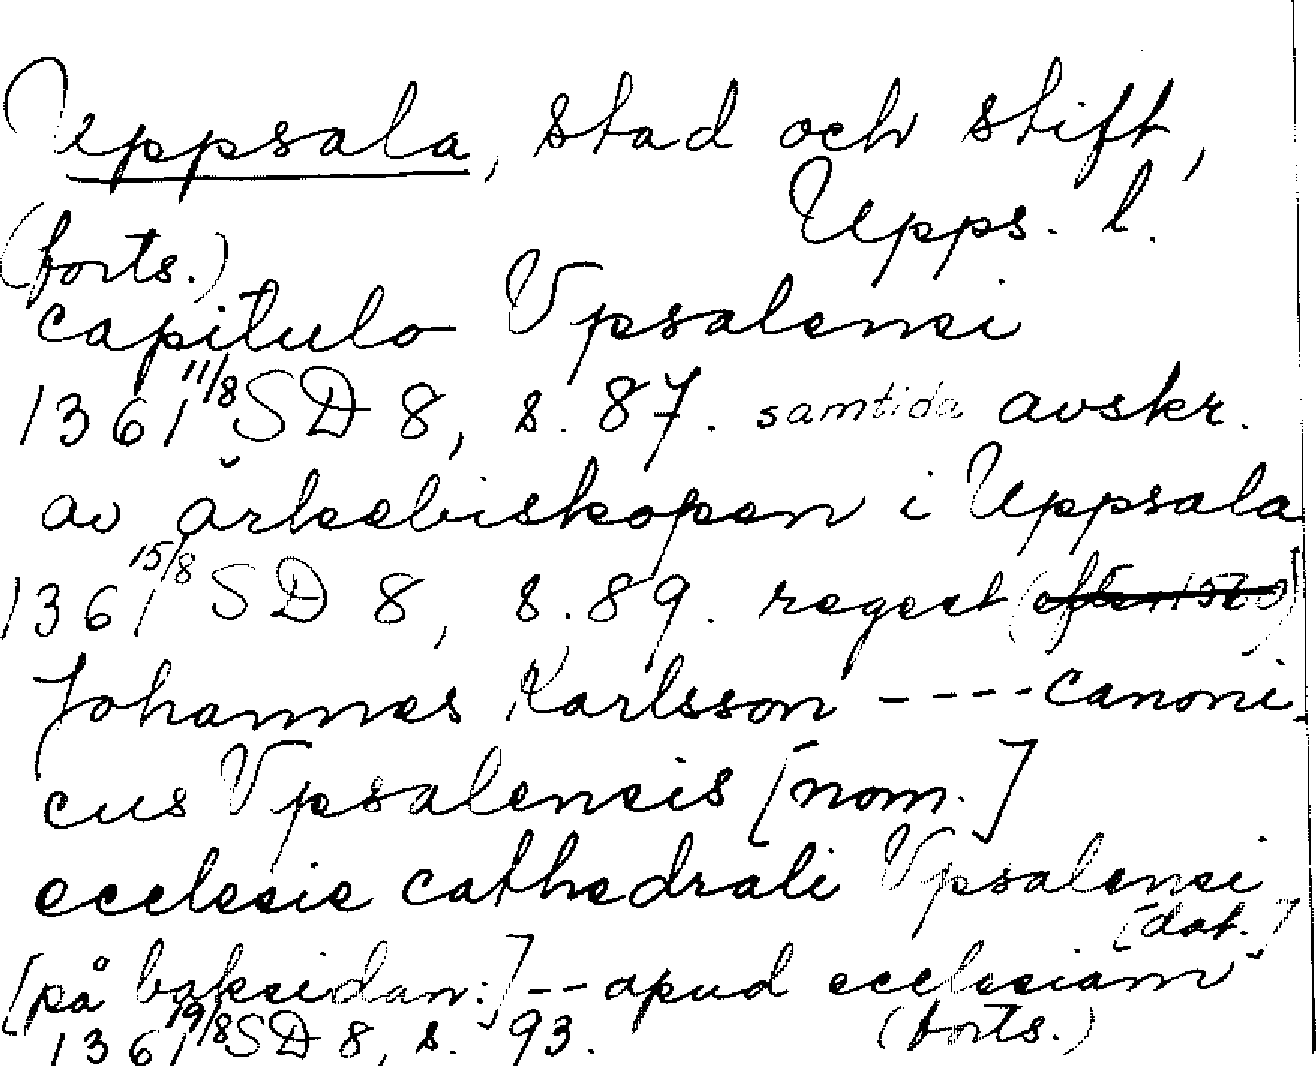 Uppsala, stad och stift,
Upps. l.
(forts.)
capitulo Vpsalensi
1361 11/8 SD 8, s. 87. samtida avskr.
av ärkebiskopen i Uppsala
1361 15/8 SD 8, s. 89. regest (efter 1560)
Johannes Karlsson ---- canoni-
cus Vpsalensis [nom.]
ecclesie cathedrali Vpsalensi
[dat.]
[på baksidan:] -- apud ecclesiam
1361 19/8 SD 8, s. 93. (forts.)